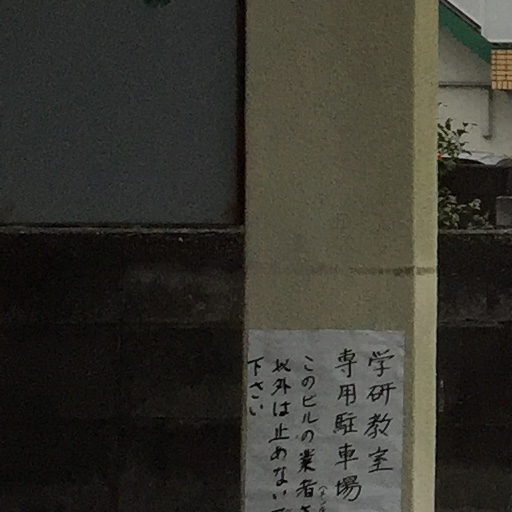 学研教室
専用駐車場
このビルの業者さ
以外は止めないで
下さい